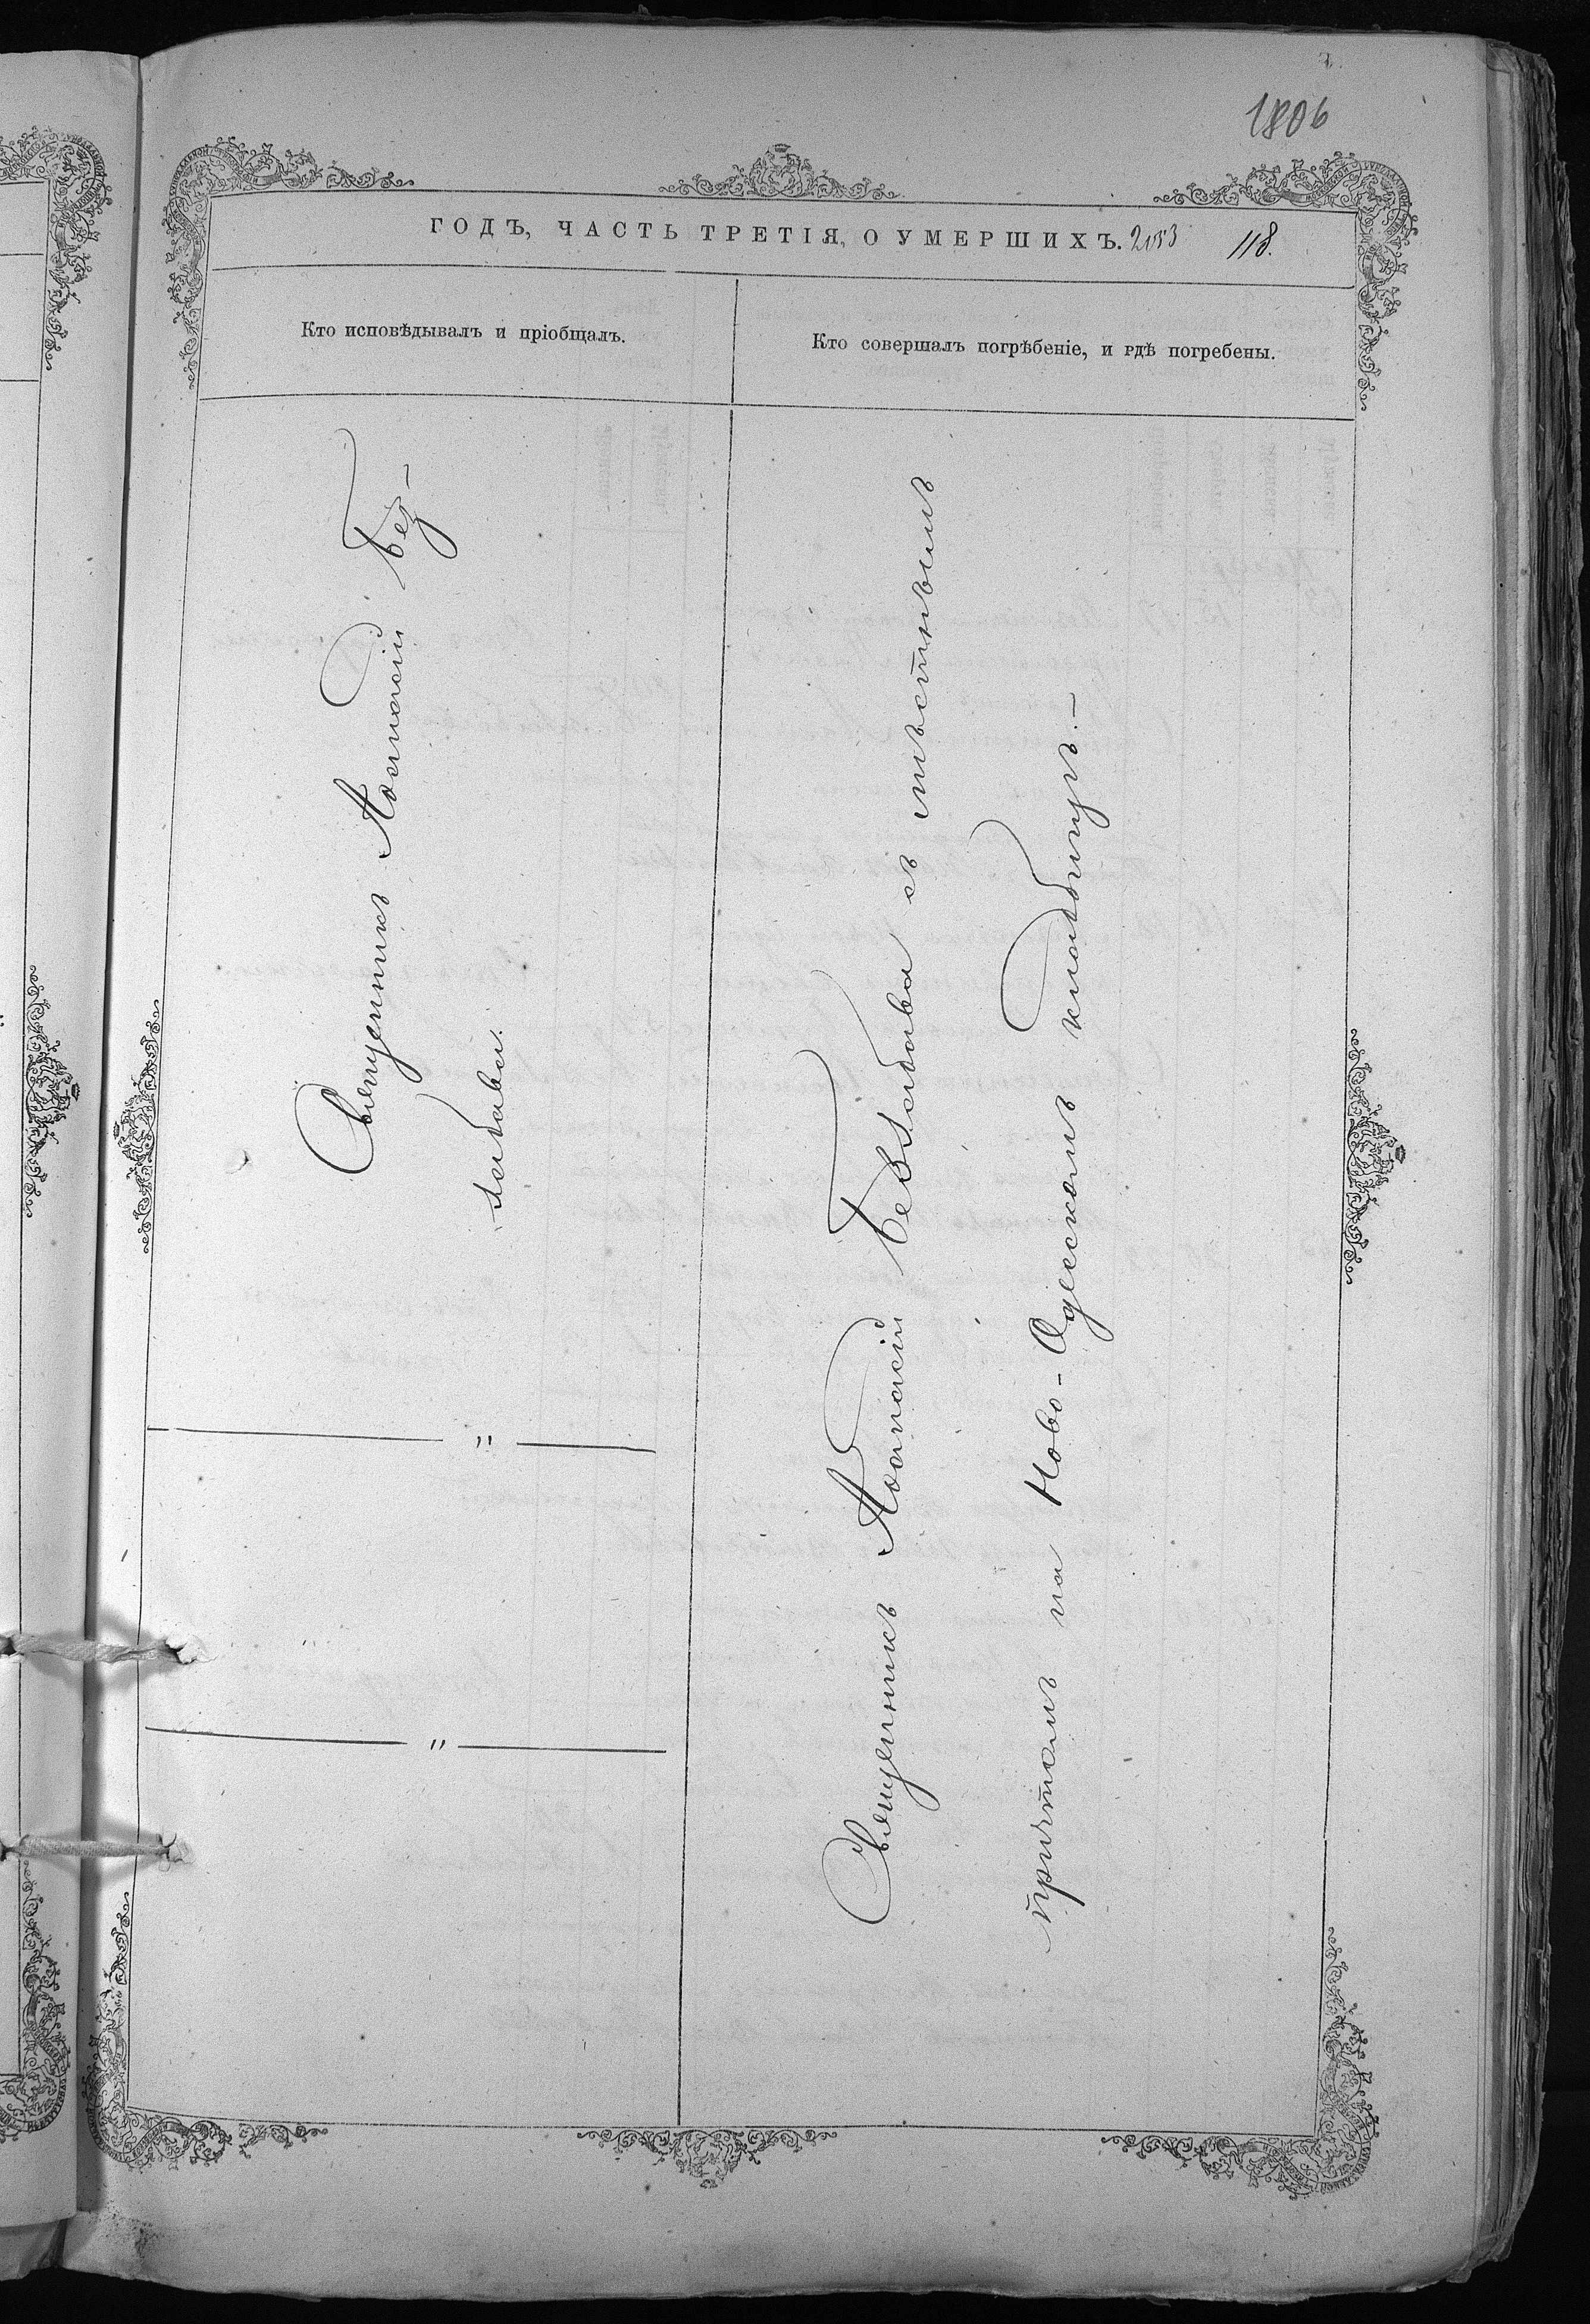 1806
ГОДЪ, ЧАСТЬ ТРЕТІЯ, О УМЕРШИХЪ. 2153 118.
Кто исповѣдывалъ и пріобщалъ.
Кто совершалъ погрѣбеніе, и гдѣ погребены.
Священникъ Аѳанасій Без-
забава.
"
"
Священникъ Аѳанасій Беззабава съ мѣстнымъ
причтомъ на Ново-Одесскомъ кладбищѣ.—